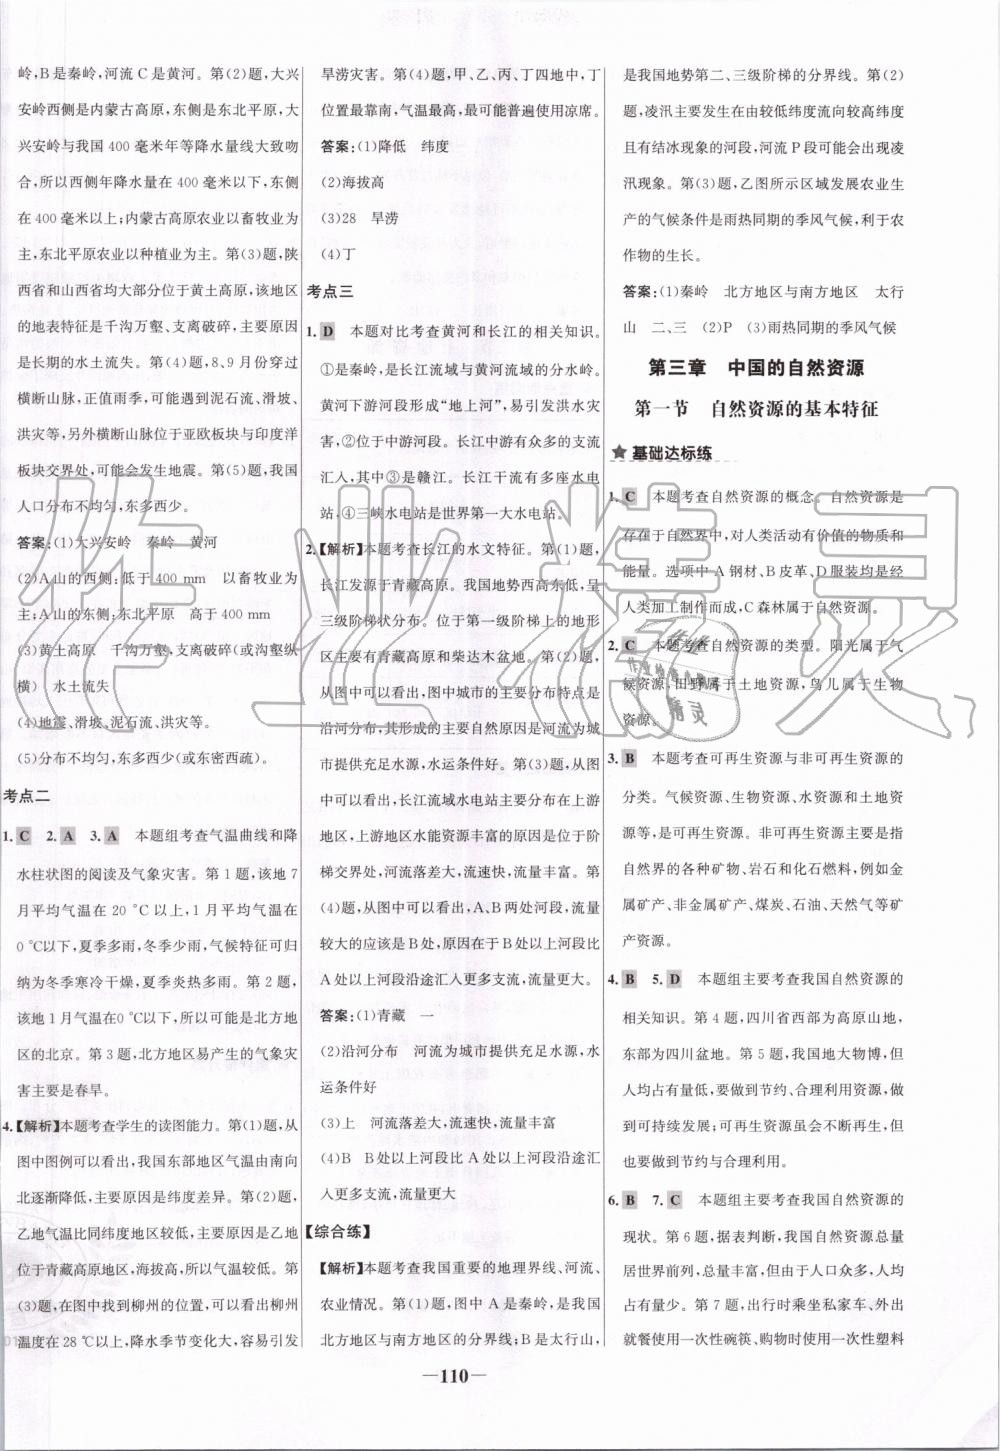 岭,B是秦岭,河流C是黄河。第(2)题,大兴
安岭西侧是内蒙古高原,东侧是东北平原,大
兴安岭与我国400毫米年等降水量线大致吻
合,所以西侧年降水量在400毫米以下,东侧
在400毫米以上;内蒙古高原农业以畜牧业为
主,东北平原农业以种植业为主。第(3)题,陕
西省和山西省均大部分位于黄土高原,该地区
的地表特征是千沟万壑、支离破碎,主要原因
是长期的水土流失。第(4)题,8、9月份穿过
横断山脉,正值雨季,可能遇到泥石流、滑坡、
洪灾等,另外横断山脉位于亚欧板块与印度洋
板块交界处,可能会发生地震。第(5)题,我国
人口分布不均匀,东多西少。
答案:(1)大兴安岭 秦岭 黄河
(2)A山的西侧:低于400 mm 以畜牧业为
主;A山的东侧:东北平原 高于400 mm
(3)黄土高原 千沟万壑,支离破碎(或沟壑纵
横) 水土流失
(4)地震、滑坡、泥石流、洪灾等。
(5)分布不均匀,东多西少(或东密西疏)。
考点二
1. C 2. A 3. A 本题组考查气温曲线和降
水柱状图的阅读及气象灾害。第1题,该地7
月平均气温在20 ℃以上,1月平均气温在
0 ℃以下,夏季多雨,冬季少雨,气候特征可归
纳为冬季寒冷干燥,夏季炎热多雨。第2题,
该地1月气温在0 ℃以下,所以最可能是北方地
区的北京。第3题,北方地区易产生的气象灾
害主要是春旱。
4.【解析】本题考查学生的读图能力。第(1)题,从
图中图例可以看出,我国东部地区气温由南向
北逐渐降低,主要原因是纬度差异。第(2)题,
乙地气温比同纬度地区较低,主要原因是乙地
位于青藏高原地区,海拔高,所以气温较低。第
(3)题,在图中找到柳州的位置,可以看出柳州
温度在28 ℃以上,降水季节变化大,容易引发
旱涝灾害。第(4)题,甲、乙、丙、丁四地中,丁
位置最靠南,气温最高,最可能普遍使用凉席。
答案:(1)降低 纬度
(2)海拔高
(3)28 旱涝
(4)丁
考点三
1. D 本题对比考查黄河和长江的相关知识。
①是秦岭,是长江流域与黄河流域的分水岭。
黄河下游河段形成“地上河”,易引发洪水灾
害,②位于中游河段。长江中游有众多的支流
汇入,其中③是赣江。长江干流有多座水电
站,④三峡水电站是世界第一大水电站。
2.【解析】本题考查长江的水文特征。第(1)题,
长江发源于青藏高原。我国地势西高东低,呈
三级阶梯状分布。位于第一级阶梯上的地形
区主要有青藏高原和柴达木盆地。第(2)题,
从图中可以看出,图中城市的主要分布特点是
沿河分布,其形成的主要自然原因是河流为城
市提供充足水源,水运条件好。第(3)题,从
图中可以看出,长江流域水电站主要分布在上游
地区,上游地区水能资源丰富的原因是位于阶
梯交界处,河流落差大,流速快,流量丰富。第
(4)题,从图中可以看出,A、B两处河段,流量
较大的应该是B处,原因在于B处以上河段比
A处以上河段沿途汇入更多支流,流量更大。
答案:(1)青藏 一
(2)沿河分布 河流为城市提供充足水源,水
运条件好
(3)上 河流落差大,流速快,流量丰富
(4)B B处以上河段比A处以上河段沿途汇
入更多支流,流量更大
【综合练】
【解析】本题考查我国重要的地理界线、河流、
农业情况。第(1)题,图中A是秦岭,是我国
北方地区与南方地区的分界线;B是太行山,
是我国地势第二、三级阶梯的分界线。第(2)
题,凌汛主要发生在由较低纬度流向较高纬度
且有结冰现象的河段,河流P段可能会出现凌
汛现象。第(3)题,乙图所示区域发展农业生
产的气候条件是雨热同期的季风气候,利于农
作物的生长。
答案:(1)秦岭 北方地区与南方地区 太行
山 二、三 (2)P (3)雨热同期的季风气候
第三章 中国的自然资源
第一节 自然资源的基本特征
★ 基础达标练
1. C 本题考查自然资源的概念。自然资源是
存在于自然界中,对人类活动有价值的物质和
能量。选项中A钢材、B皮革、D服装均是经
人类加工制作而成,C森林属于自然资源。
2. C 本题考查自然资源的类型。阳光属于气
候资源,田野属于土地资源,鸟儿属于生物
资源。
3. B 本题考查可再生资源与非可再生资源的
分类。气候资源、生物资源、水资源和土地资
源等,是可再生资源。非可再生资源主要是指
自然界的各种矿物、岩石和化石燃料,例如金
属矿产、非金属矿产、煤炭、石油、天然气等矿
产资源。
4. B 5. D 本题组主要考查我国自然资源的
相关知识。第4题,四川省西部为高原山地,
东部为四川盆地。第5题,我国地大物博,但
人均占有量低,要做到节约、合理利用资源,做
到可持续发展;可再生资源虽会不断再生,但
也要做到节约与合理利用。
6. B 7. C 本题组主要考查我国自然资源的
现状。第6题,据表判断,我国自然资源总量
居世界前列,总量丰富,但由于人口众多,人均
占有量少。第7题,出行时乘坐私家车、外出
就餐使用一次性碗筷、购物时使用一次性塑料
—110—
作业精灵